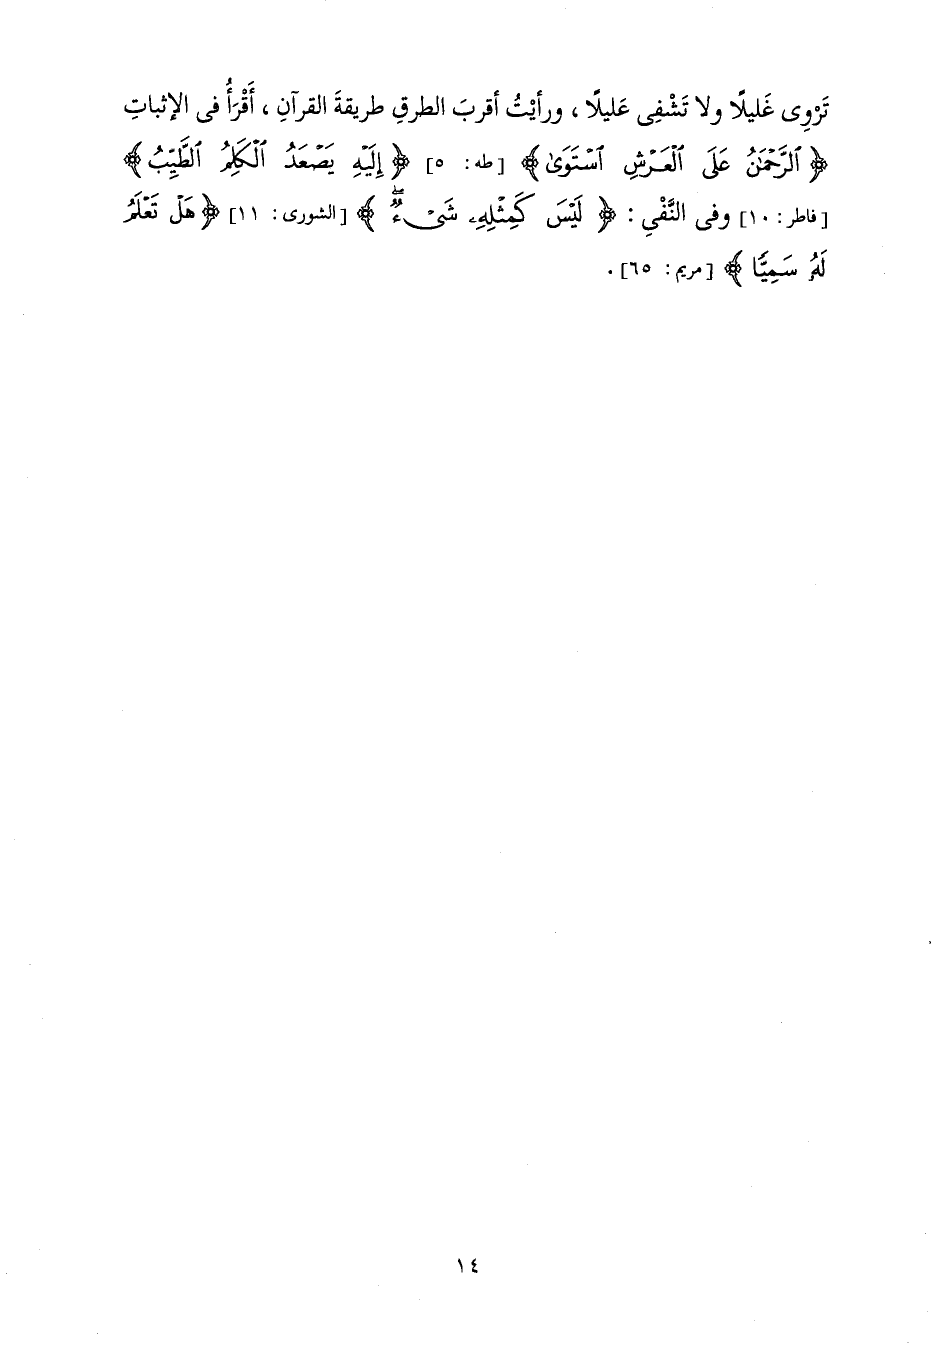 تَرْوِى غَليلًا ولا تَشْفِى عَليلًا ، ورأيْتُ أقربَ الطرقِ طريقةَ القرآنِ ، أَقْرَأُ فى الإثباتِ
﴿ ٱلرَّحْمَٰنُ عَلَى ٱلْعَرْشِ ٱسْتَوَىٰ﴾ [طه: ٥] ﴿ إِلَيْهِ يَصْعَدُ ٱلْكَلِمُ ٱلطَّيِّبُ﴾
[فاطر: ١٠] وفى النَّفْيِ : ﴿ لَيْسَ كَمِثْلِهِۦ شَىْءٌۖ ﴾ [الشورى: ١١] ﴿هَلْ تَعْلَمُ
لَهُۥ سَمِيًّا ﴾ [مريم: ٦٥] .
١٤